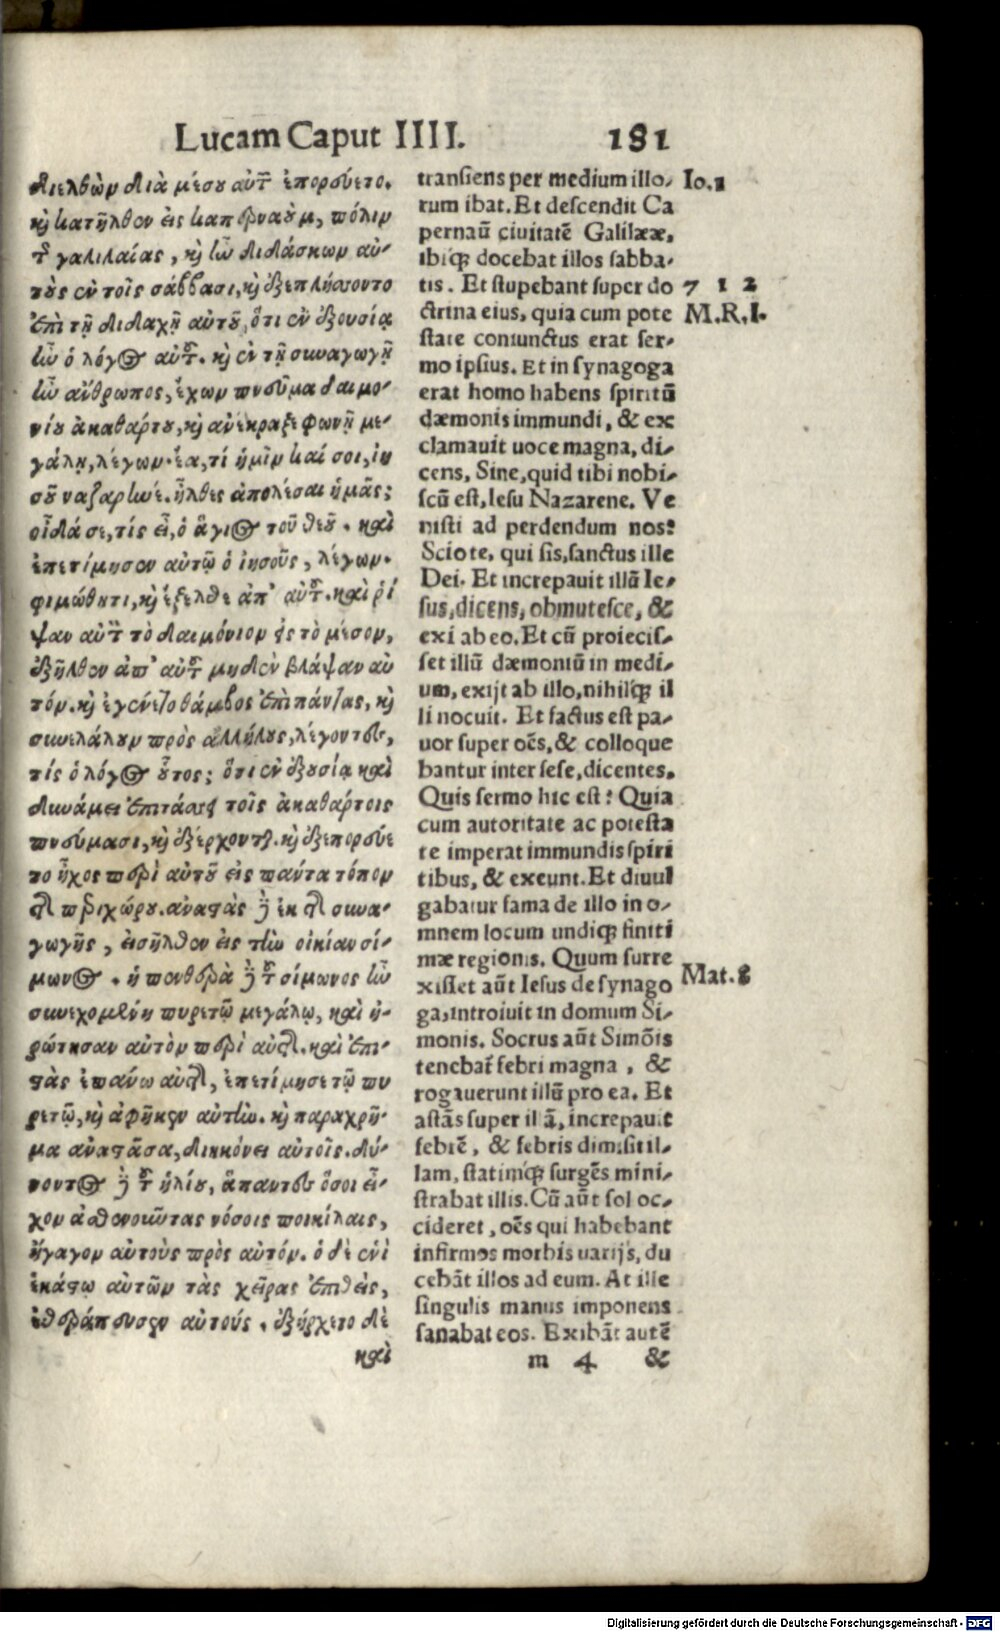 Lucam Caput IIII. 181
διελθὼν διὰ μέσου αὐτῶν ἐπορεύετο.
καὶ κατῆλθεν εἰς καπερναοὺμ, πόλιν
τῆς γαλιλαίας, καὶ ἦν διδάσκων αὐ-
τοὺς ἐν τοῖς σάββασι, καὶ ἐξεπλήσσοντο
ἐπὶ τῇ διδαχῇ αὐτοῦ, ὅτι ἐν ἐξουσίᾳ
ἦν ὁ λόγος αὐτοῦ. καὶ ἐν τῇ συναγωγῇ
ἦν ἄνθρωπος, ἔχων πνεῦμα δαιμο-
νίου ἀκαθάρτου, καὶ ἀνέκραξε φωνῇ με-
γάλῃ, λέγων. ἔα, τί ἡμῖν καί σοι, ἰη
σοῦ ναζαρηνέ. ἦλθες ἀπολέσαι ἡμᾶς;
οἶδά σε, τίς εἶ, ὁ ἅγιος τοῦ θεοῦ. καὶ
ἐπετίμησεν αὐτῷ ὁ ἰησοῦς, λέγων.
φιμώθητι, καὶ ἔξελθε ἀπ' αὐτοῦ. καὶ ῥί
ψαν αὐτὸν τὸ δαιμόνιον εἰς τὸ μέσον,
ἐξῆλθεν ἀπ' αὐτοῦ μηδὲν βλάψαν αὐ
τόν. καὶ ἐγένετο θάμβος ἐπὶ πάντας, καὶ
συνελάλουν πρὸς ἀλλήλους, λέγοντες,
τίς ὁ λόγος οὗτος; ὅτι ἐν ἐξουσίᾳ καὶ
δυνάμει ἐπιτάσσει τοῖς ἀκαθάρτοις
πνεύμασι, καὶ ἐξέρχονται. καὶ ἐξεπορεύε
το ἦχος περὶ αὐτοῦ εἰς πάντα τόπον
τῆς περιχώρου. ἀναστὰς δὲ ἐκ τῆς συνα-
γωγῆς, εἰσῆλθεν εἰς τὴν οἰκίαν σί-
μωνος. ἡ πενθερὰ δὲ τοῦ σίμωνος ἦν
συνεχομένη πυρετῷ μεγάλῳ, καὶ ἠ-
ρώτησαν αὐτὸν περὶ αὐτῆς. καὶ ἐπι-
στὰς ἐπάνω αὐτῆς, ἐπετίμησε τῷ πυ
ρετῷ, καὶ ἀφῆκεν αὐτὴν. καὶ παραχρῆ-
μα ἀναστᾶσα, διηκόνει αὐτοῖς. δύ-
νοντος δὲ τοῦ ἡλίου, ἅπαντες ὅσοι εἶ-
χον ἀσθενοῦντας νόσοις ποικίλαις,
ἤγαγον αὐτοὺς πρὸς αὐτόν. ὁ δὲ ἑνὶ
ἑκάστῳ αὐτῶν τὰς χεῖρας ἐπιθεὶς,
ἐθεράπευσεν αὐτούς. ἐξήρχετο δὲ
καὶ
transiens per medium illo-
rum ibat. Et descendit Ca
pernaū ciuitatē Galilææ,
ibiq; docebat illos sabba-
tis. Et stupebant super do
ctrina eius, quia cum pote
state coniunctus erat ser-
mo ipsius. Et in synagoga
erat homo habens spiritū
dæmonis immundi, & ex
clamauit uoce magna, di-
cens, Sine, quid tibi nobi-
scū est, Iesu Nazarene. Ve
nisti ad perdendum nos?
Scio te, qui sis, sanctus ille
Dei. Et increpauit illū Ie-
sus, dicens, obmutesce, &
exi ab eo. Et cū proiecis-
set illū dæmoniū in medi-
um, exijt ab illo, nihilq; il
li nocuit. Et factus est pa-
uor super oēs, & colloque
bantur inter sese, dicentes.
Quis sermo hic est? Quia
cum autoritate ac potesta
te imperat immundis spiri
tibus, & exeunt. Et diuul
gabatur fama de illo in o-
mnem locum undiq; finiti
mæ regionis. Quum surre
xisset aūt Iesus de synago
ga, introiuit in domum Si-
monis. Socrus aūt Simōis
tenebat̄ febri magna, &
rogauerunt illū pro ea. Et
astās super illā, increpauit
febrē, & febris dimisit il-
lam, statimq; surgēs mini-
strabat illis. Cū aūt sol oc-
cideret, oēs qui habebant
infirmos morbis uarijs, du
cebāt illos ad eum. At ille
singulis manus imponens
sanabat eos. Exibāt autē
m 4 &
Io. 2
7 1 2
M.R.I.
Mat. 8
Digitalisierung gefördert durch die Deutsche Forschungsgemeinschaft - DFG